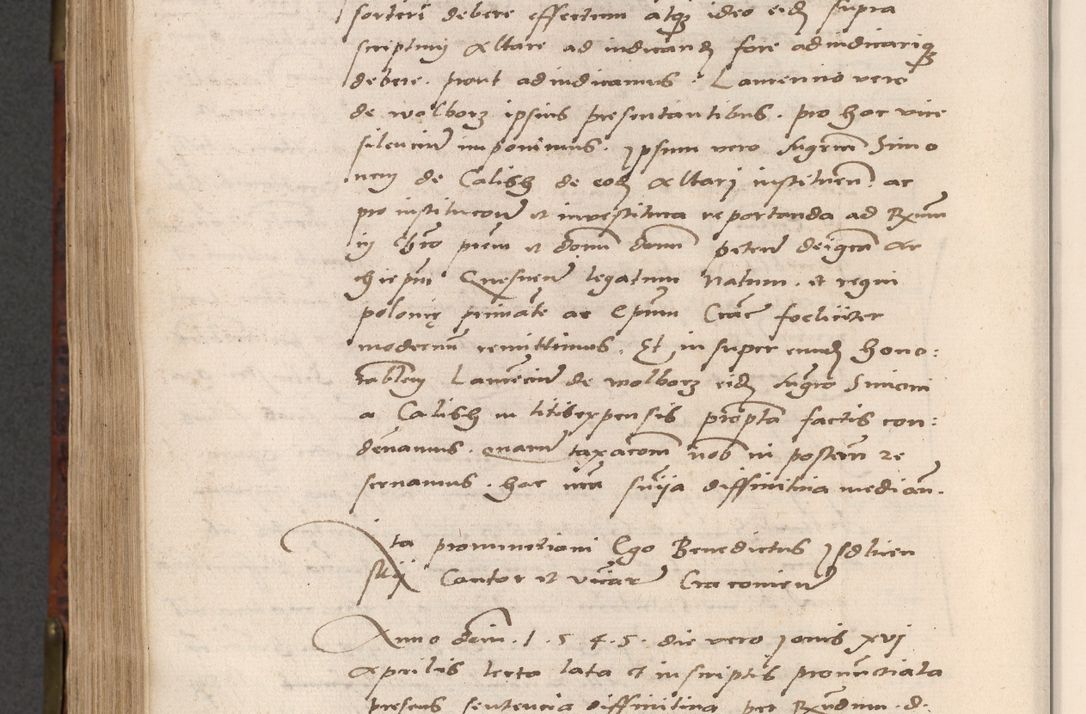 sortiri debere effectum atqꝫ ideo eidꝫ supra
scriptum altare ad iudicandꝫ fore adiudicariqꝫ
debere. prout adiudicamus. Laurencio vero
de wolborz ipsius presentantibus. pro hac vice
silencium imponimus. Ipsum vero dngrem Simo
nem de Calish de eodꝫ altari instituen. ac
pro institucone et investitura reportanda ad Rxdum
in Chro prem et domi domi petrum dei gra Ar
chiepm Gnesnen legatum Natum. et regni
polonię primate ac Epum Crac foeliciter
modernu remittimus. Et insuper eundꝫ hono:
rablem Laurenciu de wolborz eidꝫ dngro Simoni
a Calish in litisexpensis propta factis con:
denamus. quaru taxacom nob in posteru re
seruamus. hac nra snia diffinitiva median.
Ita pronunctiavi Ego Benedictus Isdbien
sky Cantor et vicar Cracovien
Anno domi. 1. 5. 4. 5. die vero Jovis xvj
Aprilis lecta lata et in scriptis pronunctiata
presens sentencia diffinitiva per Rxndum. d.